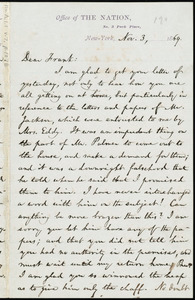 Office of THE NATION,
No. 3 Park Place,
New York, Nov. 3, 1869.
Dear Frank:
I am glad to get your letter of
yesterday, not only to learn how you are
all getting on at home, but particularly in
reference to the letters and papers of Mr.
Jackson, which was entrusted to me by
Mrs. Eddy. It was an impudent thing on
the part of Mr. Palmer to come out to
the house, and make a demand for them;
and it was a downright falsehood that
he told when he said that I promised
them to him. I have never interchanged
a word with him on the subject! Can
anything be more brazen than this? I
am very sorry you let him have any of the
papers; and that you did not tell him
you had no authority in the premises, and
must wait until my return home. But
I am glad you so winnowed the heap
as to give him only the chaff. No doubt